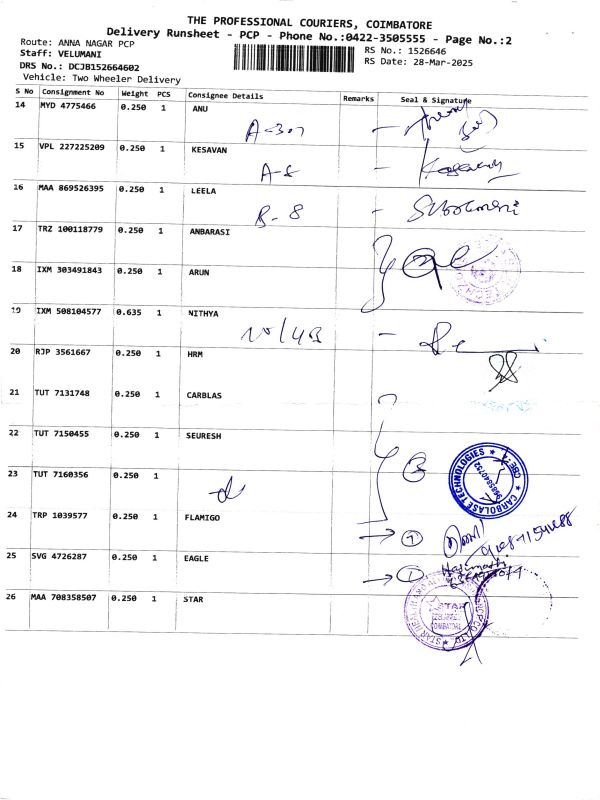 THE PROFESSIONAL COURIERS, COIMBATORE
Delivery Runsheet - PCP - Phone No.:0422-3505555 - Page No.:2
Route: ANNA NAGAR PCP
RS No.: 1526646
Staff: VELUMANI
RS Date: 28-Mar-2025
DRS No.: DCJB152664602
Vehicle: Two Wheeler Delivery
S No Consignment No Weight PCS Consignee Details Remarks Seal & Signature
14 MYD 4775466 0.250 1 ANU
A-307
15 VPL 227225209 0.250 1 KESAVAN
A-8
16 MAA 869526395 0.250 1 LEELA
B-8
17 TRZ 100118779 0.250 1 ANBARASI
18 IXM 303491843 0.250 1 ARUN
19 IXM 508104577 0.635 1 NITHYA
20 RJP 3561667 0.250 1 HRM
21 TUT 7131748 0.250 1 CARBLAS
22 TUT 7150455 0.250 1 SEURESH
CARBOLASE TECHNOLOGIES
CBE
23 TUT 7160356 0.250 1
24 TRP 1039577 0.250 1 FLAMIGO
25 SVG 4726287 0.250 1 EAGLE
26 MAA 708358507 0.250 1 STAR
STAR
COIMBATORE